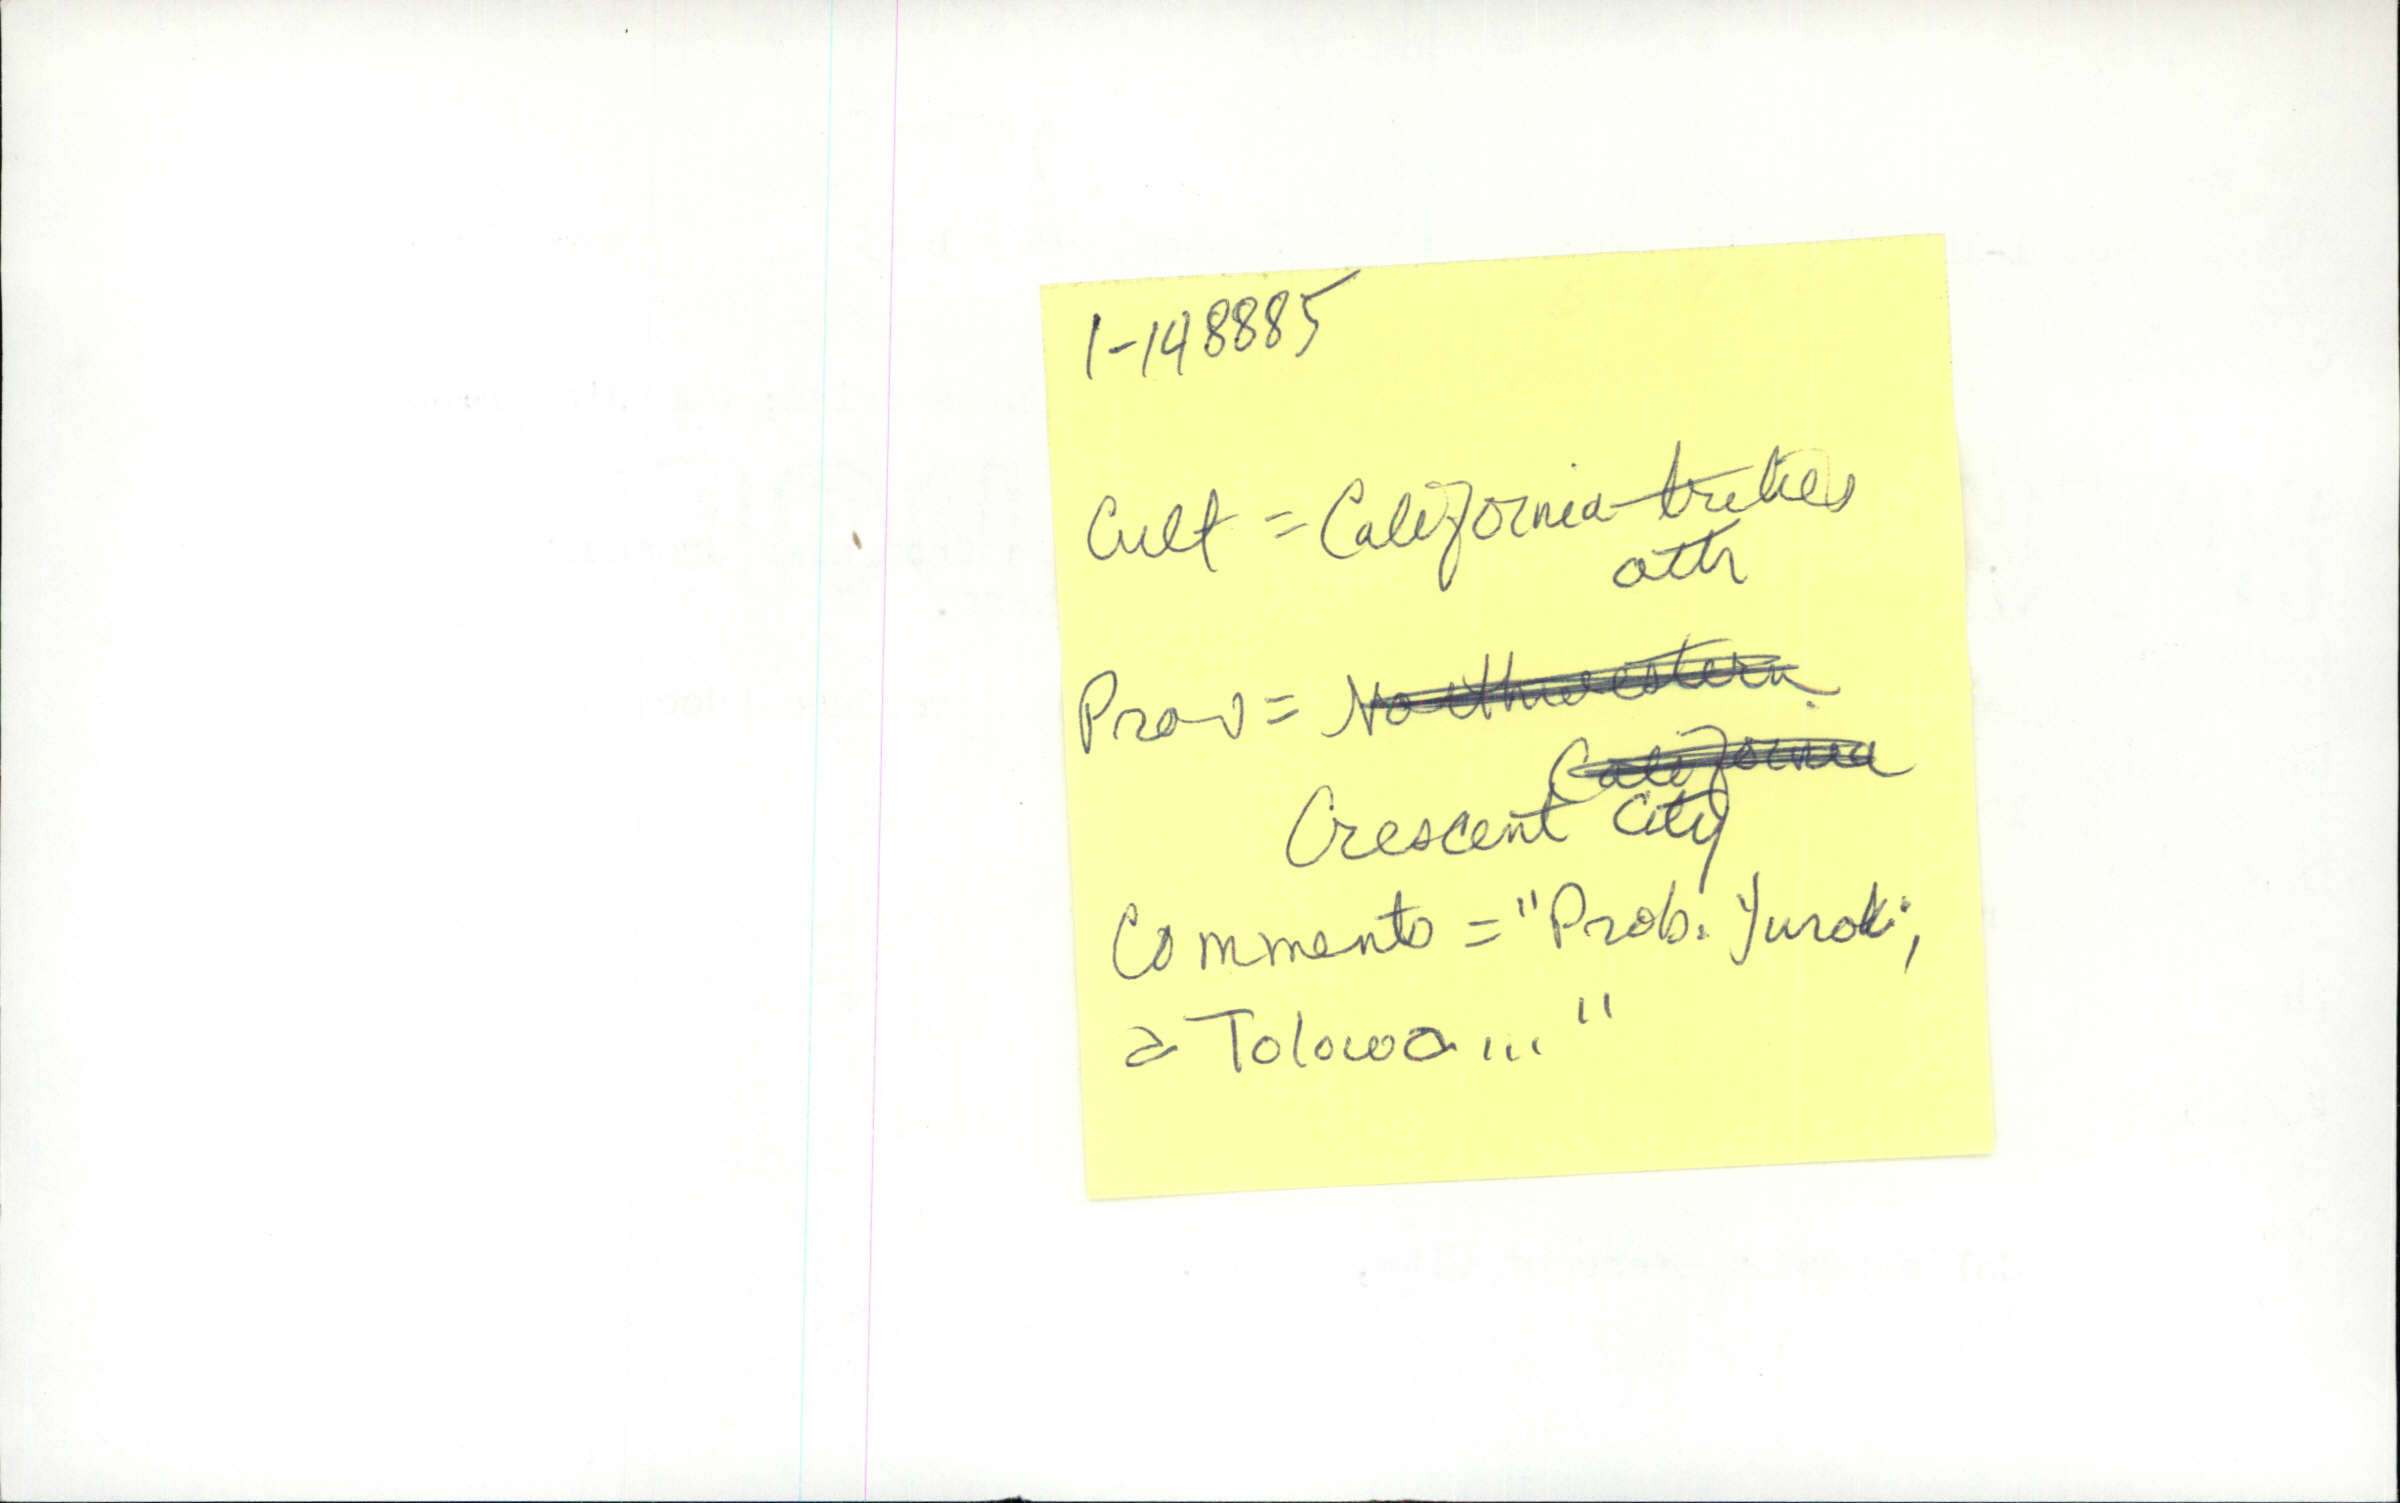 1-148885
Cult = California tribes
attr
Prov = Northwestern
California
Crescent City
Comments = "Prob. Yurok;
a Tolowa ..."